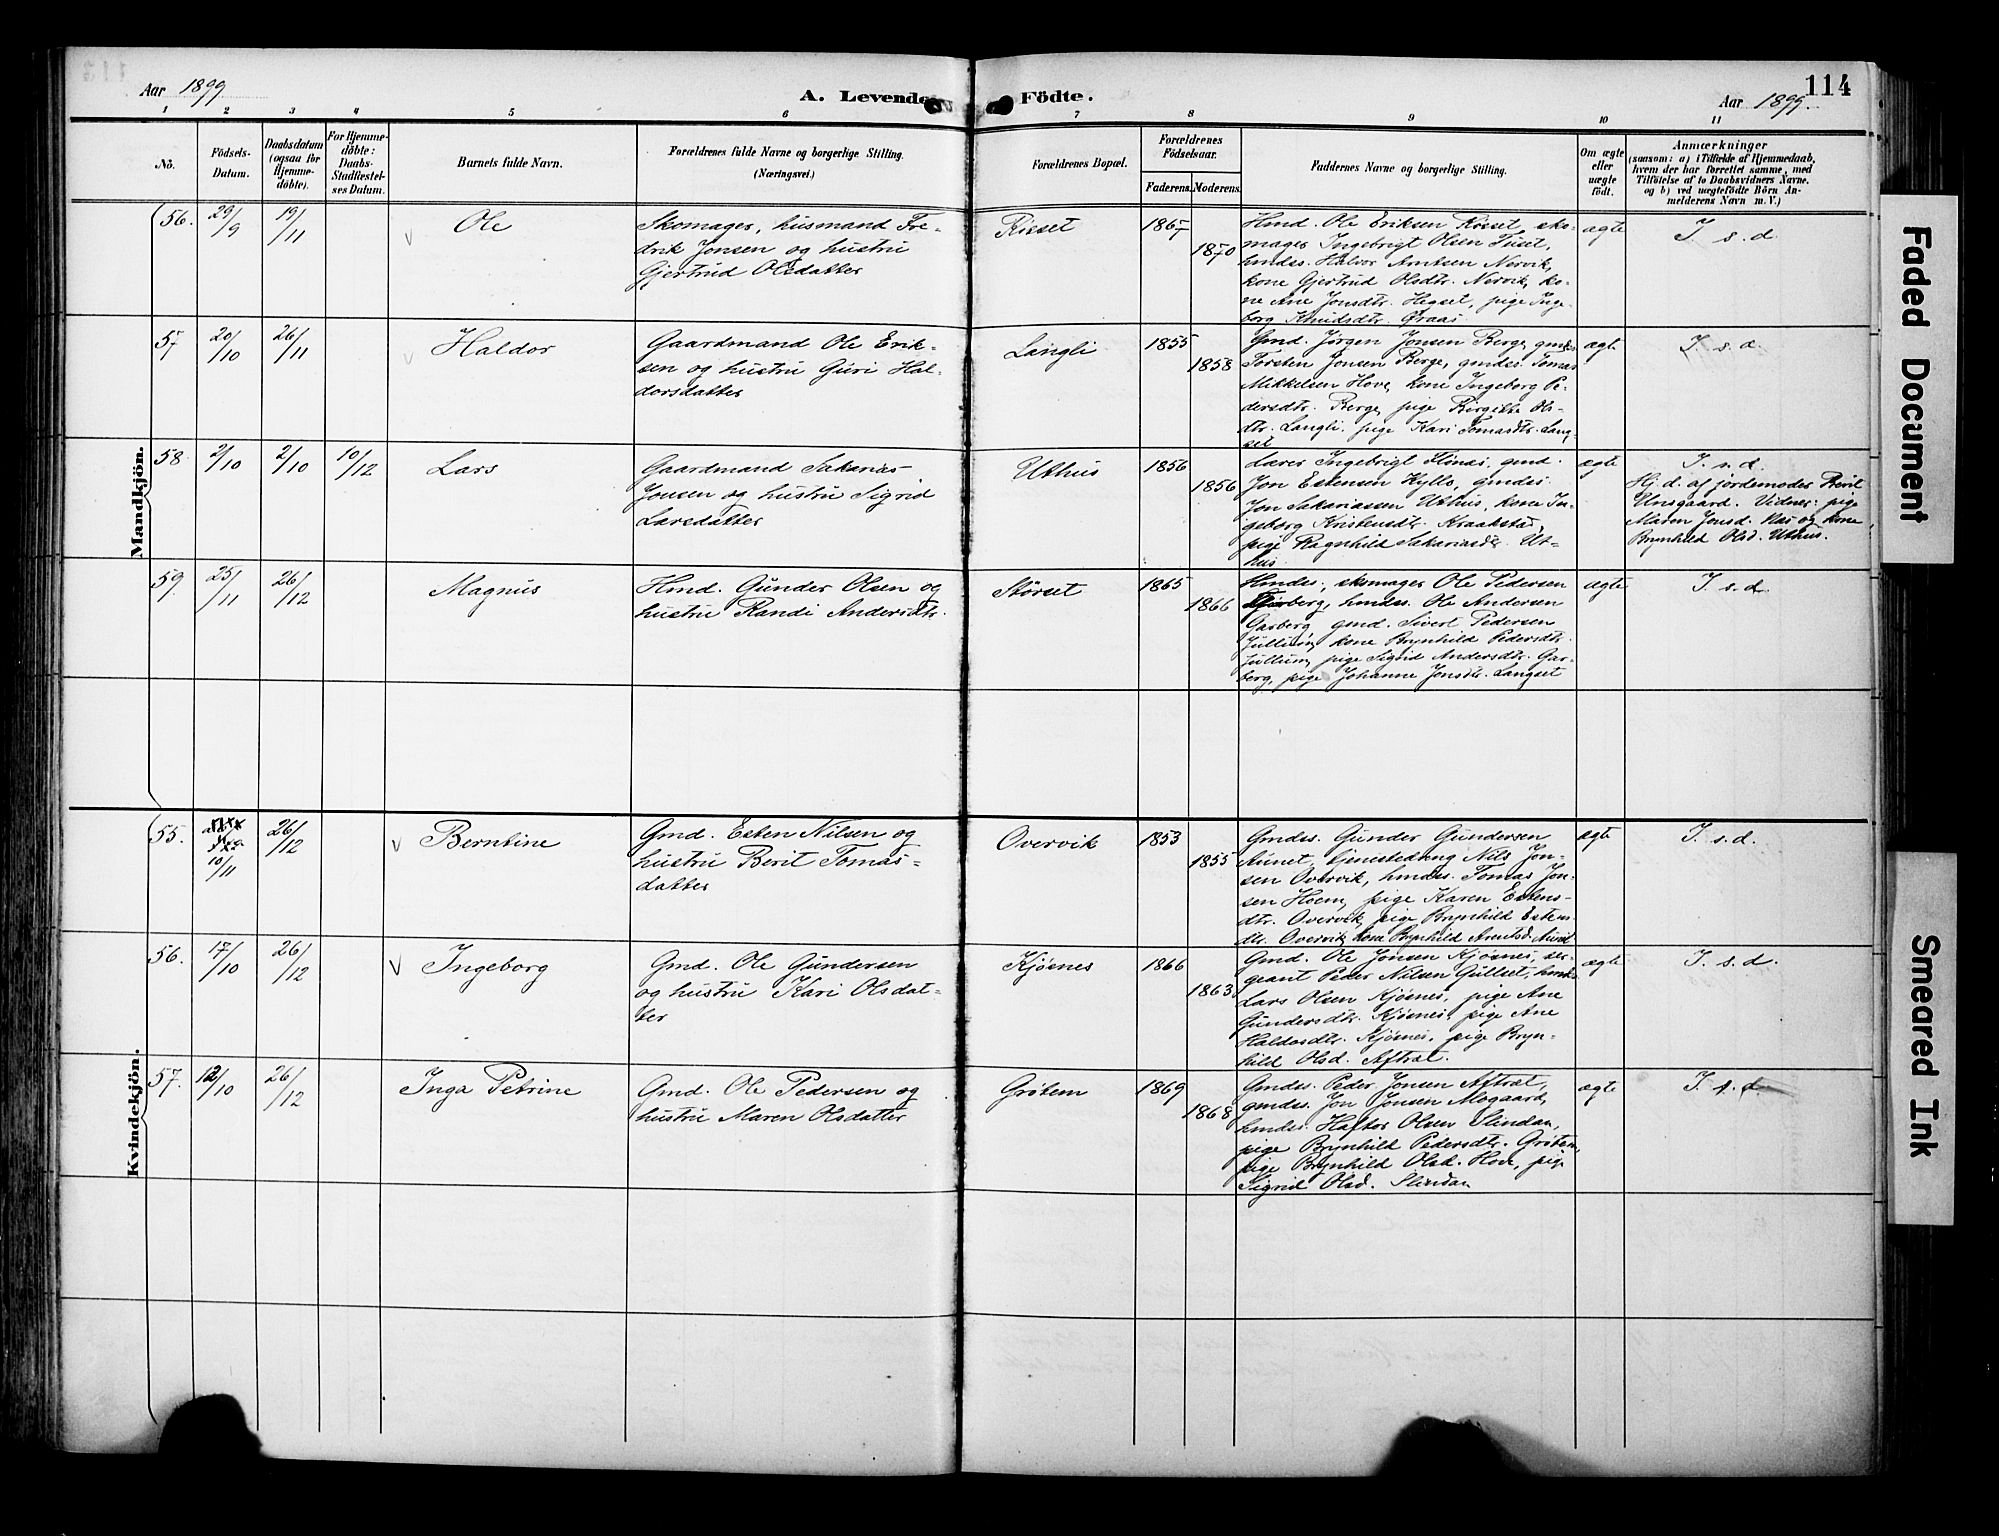 Aar 1899
A. Levende Födte.
Aar 1899.
114
1 2 3 4 5 6 7 8 9 10 11
No.
Födsels-
Datum.
Daabsdatum
(ogsaa for
Hjemme-
döbte).
For Hjemme-
döbte:
Daabs-
Stadfæstel-
ses Datum.
Barnets fulde Navn.
Forældrenes fulde Navne og borgerlige Stilling.
(Næringsvei.)
Forældrenes Bopæl.
Forældrenes
Födselsaar.
Faderens. Moderens.
Faddernes Navne og borgerlige Stilling.
Om ægte
eller
uægte
födt.
Anmærkninger
(saasom: a) i Tilfælde af Hjemmedaab,
hvem der har forrettet samme, med
Tilföielse af to Daabsvidners Navne.
og b) ved uægtefödte Börn An-
melderens Navn m. V.)
Mandkjön.
56. 29/9 19/11
Ole
Skomager, husmand Fre-
drik Jonsen og hustru
Gjertrud Olsdatter
Riset
1867
1870
Hmd. Ole Eriksen Riset, sko-
mager Ingebrigt Olsen Tuset,
hmdss. Halvor Arntsen Nervik,
kone Gjertrud Olsdtr. Nervik, ko-
ne Ane Jonsdtr. Hegset, pige Inge-
borg Knudsdtr. Graas.
ægte
I. s. d.
57 20/10 26/11
Haldor
Gaardmand Ole Erik-
sen og hustru Guri Hal-
dorsdatter
Langli
1855
1858
Gmd. Jörgen Jonsen Berge, gmds.
Torsten Jonsen Berge, gmdss. Tomas
Mikkelsen Hove, kone Ingeborg Pe-
dersdtr. Berge, pige Birgitte Ols-
dtr. Langli, pige Kari Tomasdtr. Lang-
set
ægte
I. s. d.
58. 2/10 2/10 10/12
Lars
Gaardmand Sakarias
Jonsen og hustru Sigrid
Larsdatter
Uthus
1856
1856
Lærer Ingebrigt Stinæs, gmd.
Jon Estensen Kyllo, gmdss.
Jon Sakariassen Uthus, kone In-
geborg Kristensdtr. Kraakstad,
pige Ragnhild Sakariasdtr. Ut-
hus
ægte
I. s. d.
Hj. d. af jordemoder Berit
Unsgaard. Vidner: pige
Maren Jonsd. Næs og kone
Brynhild Olsd. Uthus.
59. 25/11 26/12
Magnus
Hmd. Gunder Olsen og
hustru Randi Andersdtr.
Störset
1865
1866
Hmdss, skomager Ole Pedersen
Garberg, hmdss. Ole Andersen
Garberg, gmd. Sivert Pedersen
Jullum, kone Brynhild Pedersdtr.
Jullum, pige Sigrid Andersdtr. Gar-
berg, pige Johanne Jonsdtr. Langset
ægte
I. s. d.
Kvindekjön.
55. 10/11 26/12
Berntine
Gmd. Esten Nilsen og
hustru Berit Tomas-
datter
Overvik
1853
1855
Gmdss. Gunder Gundersen
Aunet, tjenestedreng Nils Jon-
sen Overvik, hmdss. Tomas Jon-
sen Hoem, pige Karen Estens-
dtr. Overvik, pige Brynhild Estens-
dtr. Overvik, kone Brynhild Arentsd. Aunet
ægte
I. s. d.
56. 17/10 26/12
Ingeborg
Gmd. Ole Gundersen
og hustru Kari Olsdat-
ter
Kjösnes
1866
1863
Gmd. Ole Jonsen Kjösnes, ser-
geant Peder Nilsen Gullset, hmds.
Lars Olsen Kjösnes, pige Ane
Gundersdtr. Kjösnes, pige Ane
Haldosdtr. Kjösnes, pige Bryn-
hild Olsd. Aftrat.
ægte
I. s. d.
57. 12/10 26/12
Inga Petrine
Gmd. Ole Pedersen og
hustru Maren Olsdatter
Grötem
1869
1868
Gmdss. Peder Jonsen Aftrat,
gmdss. Jon Jonsen Mogaard,
hmdss. Haftor Olsen Slindan,
pige Brynhild Pedersdtr. Grötem,
pige Brynhild Olsd. Hove, pige
Sigrid Olsd. Slindan
ægte
I. s. d.
Faded Document
Smeared Ink